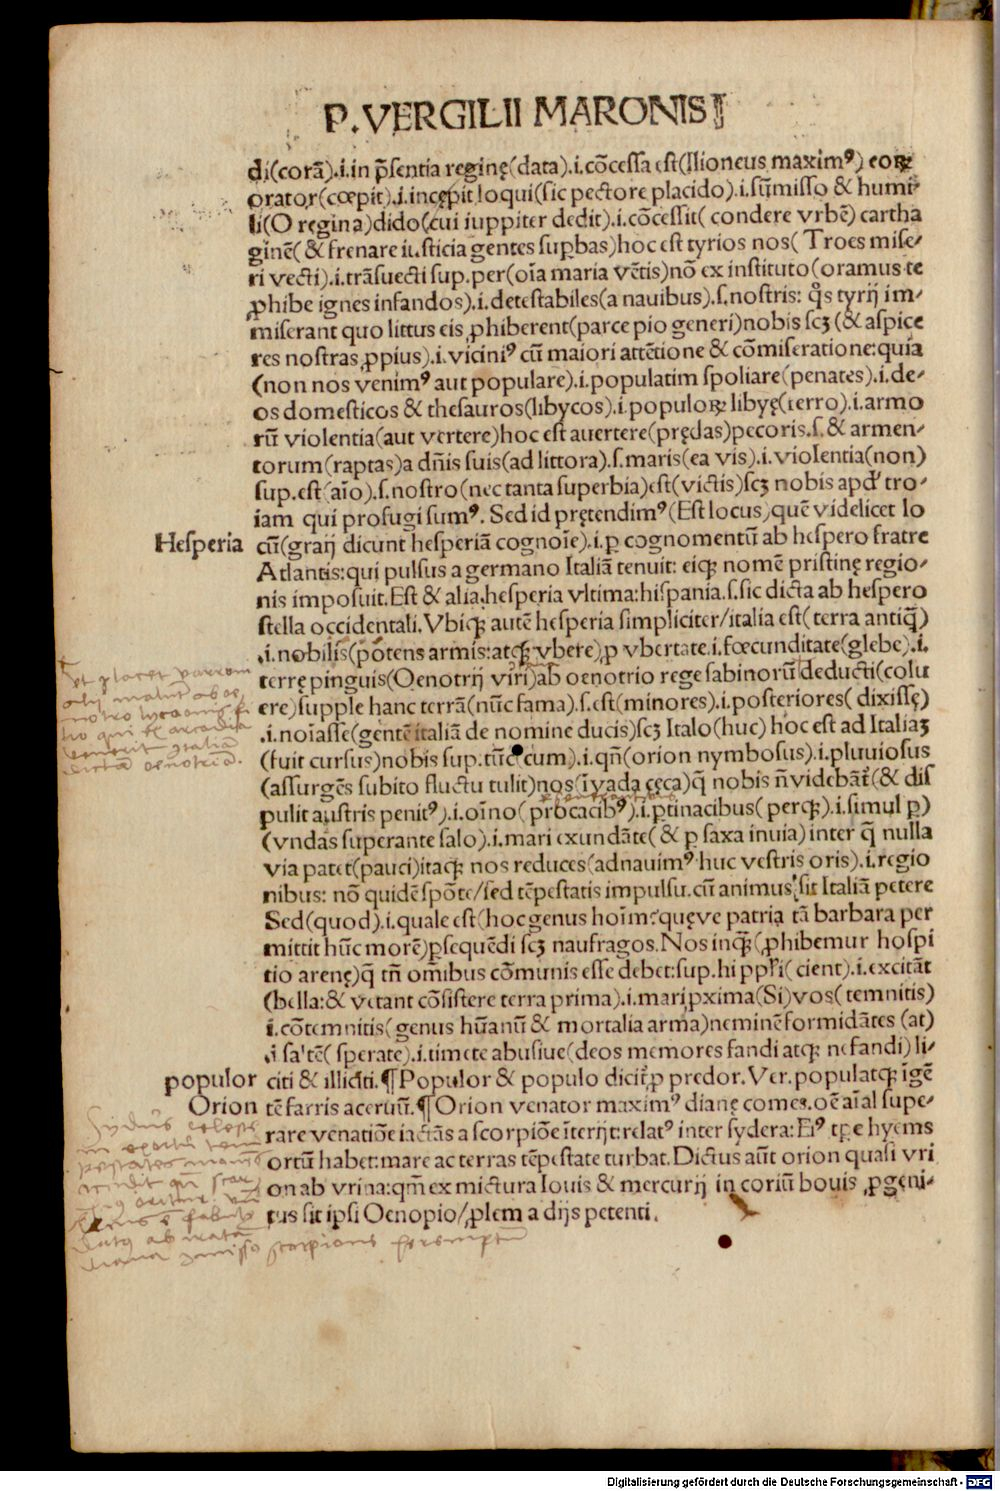 P. VERGILII MARONIS
di(corã).i.in p̃sentia reginę(data).i.cõcessa est(Ilioneus maxim⁹) eoꝝ
orator(cœpit).i.incępit loqui(sic pectore placido).i.sũmisso & humi-
li(O regina)dido(cui iuppiter dedit).i.cõcessit( condere vrbẽ) cartha
ginẽ( & frenare iusticia gentes suꝑbas)hoc est tyrios nos( Troes mise-
ri vecti).i.trãsuecti sup.per(oĩa maria vẽtis)nõ ex instituto(oramus te
ꝓhibe ignes infandos).i.detestabiles(a nauibus).s.nostris: q̊s tyrij im-
miserant quo littus eis ꝓhiberent(parce pio generi)nobis scꝫ (& aspice
res nostras ꝓpius).i.vicini⁹ cũ maiori attẽtione & cõmiseratione:quia
(non nos venim⁹ aut populare).i.populatim spoliare(penates).i.de-
os domesticos & thesauros(libycos).i.populoꝝ libyę(ferro).i.armo
rũ violentia(aut vertere)hoc est auertere(prędas)pecoris.s.& armen-
torum(raptas)a dñis suis(ad littora).s.maris(ea vis).i.violentia(non)
sup.est(aĩo).s.nostro(nec tanta superbia)est(victis)scꝫ nobis apď tro-
iam qui profugi sum⁹. Sed id prętendim⁹(Est locus)quẽ videlicet lo
Hesperia cũ(graij dicunt hesperiã cognoĩe).i.ꝑ cognomentũ ab hespero fratre
Atlantis:qui pulsus a germano Italiã tenuit: eiqꝫ nomẽ pristinę regio-
nis imposuit.Est & alia hesperia vltima:hispania.s.sic dicta ab hespero
stella occidentali.Vbiqꝫ autẽ hesperia simpliciter/italia est( terra antiq̃)
.i.nobilis(potens armis:atqꝫ vbere)ꝓ vbertate.i.fœcunditate(glebe).i.
terrę pinguis(Oenotrij viri)ab oenotrio rege sabinorũ deducti(colu
ere)supple hanc terrã(nũc fama).s.est(minores).i.posteriores( dixissę)
.i.noĩasse(gentẽ italiã de nomine ducis)scꝫ Italo(huc) hoc est ad Italiaꝫ
(fuit cursus)nobis sup.tũc(cum).i.qñ(orion nymbosus).i.pluuiosus
(assurgẽs subito fluctu tulit)nos(ĩ vada cęca)q̃ nobis ñ videbãt̃(& dis
pulit austris penit⁹).i.oĩno(procacib⁹).i.ꝑtinacibus(perqꝫ).i.simul ꝑ)
(vndas superante salo).i.mari exundãte(& ꝑ saxa inuia)inter q̃ nulla
via patet(pauci)itaqꝫ nos reduces(adnauim⁹ huc vestris oris).i.regio
nibus: nõ quidẽ spõte/sed tẽpestatis impulsu.cũ animus sit Italiã petere
Sed(quod).i.quale est(hoc genus hoĩm:quęve patria tã barbara per
mittit hũc morẽ)ꝑsequẽdi scꝫ naufragos.Nos inqꝫ(ꝓhibemur hospi
tio arenę)q̃ tñ om̃ibus cõmunis esse debet:sup.hi ppl̃i(cient).i.excitãt
(bella:& vetant cõsistere terra prima).i.mari ꝓxima(Si)vos(temnitis)
i.cõtemnitis(genus hũanũ & mortalia arma)neminẽ formidãtes (at)
.i sal'tẽ( sperate).i.timete abusiue(deos memores fandi atqꝫ nefandi)li-
populor citi & illiciti.¶Populor & populo dicit̃ ꝓ predor.Ver.populatqꝫ ĩgẽ
Orion tẽ farris aceruũ.¶Orion venator maxim⁹ dianę comes.oẽ aĩal supe-
rare venatiõe iactãs a scorpiõe ĩterijt:relat⁹ inter sydera:Ei⁹ tꝑe hyems
ortũ habet:mare ac terras tẽpestate turbat.Dictus aũt orion quasi vri
on ab vrina:qm̃ ex mictura Iouis & mercurij in coriũ bouis ꝓgeni-
tus sit ipsi Oenopio/ꝓlem a dijs petenti.
Digitalisierung gefördert durch die Deutsche Forschungsgemeinschaft - DFG